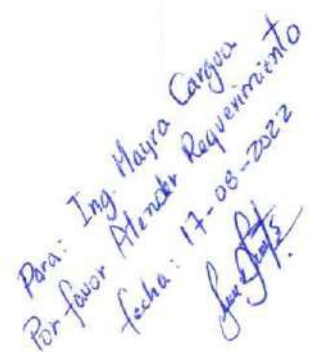 Para: Ing. Mayra Cargua
Por favor Atender Requerimiento
fecha: 17-08-2022